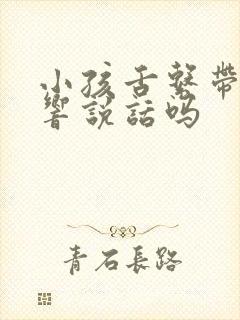 小孩舌繫帶
響說話吗
青石長路